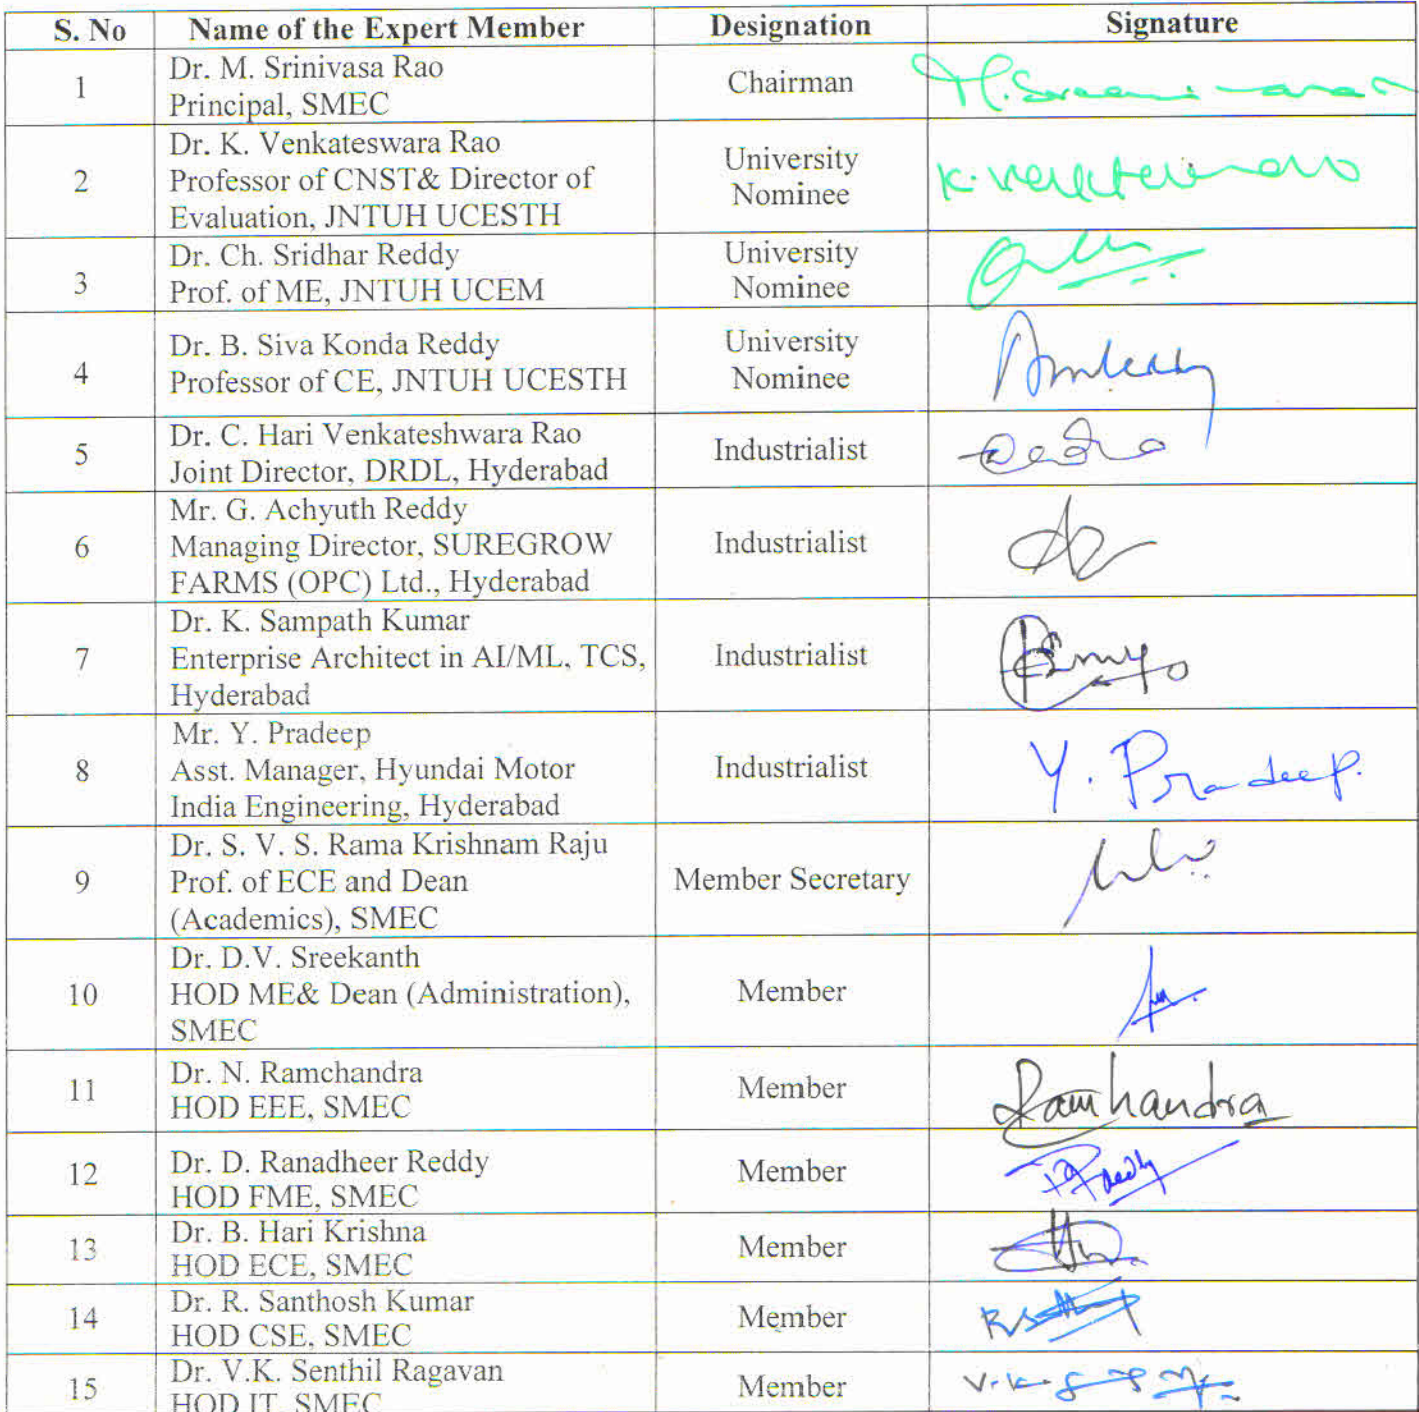 S. No Name of the Expert Member Designation Signature
1 Dr. M. Srinivasa Rao
Principal, SMEC Chairman
2 Dr. K. Venkateswara Rao
Professor of CNST& Director of
Evaluation, JNTUH UCESTH University
Nominee
3 Dr. Ch. Sridhar Reddy
Prof. of ME, JNTUH UCEM University
Nominee
4 Dr. B. Siva Konda Reddy
Professor of CE, JNTUH UCESTH University
Nominee
5 Dr. C. Hari Venkateshwara Rao
Joint Director, DRDL, Hyderabad Industrialist
6 Mr. G. Achyuth Reddy
Managing Director, SUREGROW
FARMS (OPC) Ltd., Hyderabad Industrialist
7 Dr. K. Sampath Kumar
Enterprise Architect in AI/ML, TCS,
Hyderabad Industrialist
8 Mr. Y. Pradeep
Asst. Manager, Hyundai Motor
India Engineering, Hyderabad Industrialist Y. Pradeep.
9 Dr. S. V. S. Rama Krishnam Raju
Prof. of ECE and Dean
(Academics), SMEC Member Secretary
10 Dr. D.V. Sreekanth
HOD ME& Dean (Administration),
SMEC Member
11 Dr. N. Ramchandra
HOD EEE, SMEC Member Ramchandra
12 Dr. D. Ranadheer Reddy
HOD FME, SMEC Member
13 Dr. B. Hari Krishna
HOD ECE, SMEC Member
14 Dr. R. Santhosh Kumar
HOD CSE, SMEC Member
15 Dr. V.K. Senthil Ragavan
HOD IT, SMEC Member